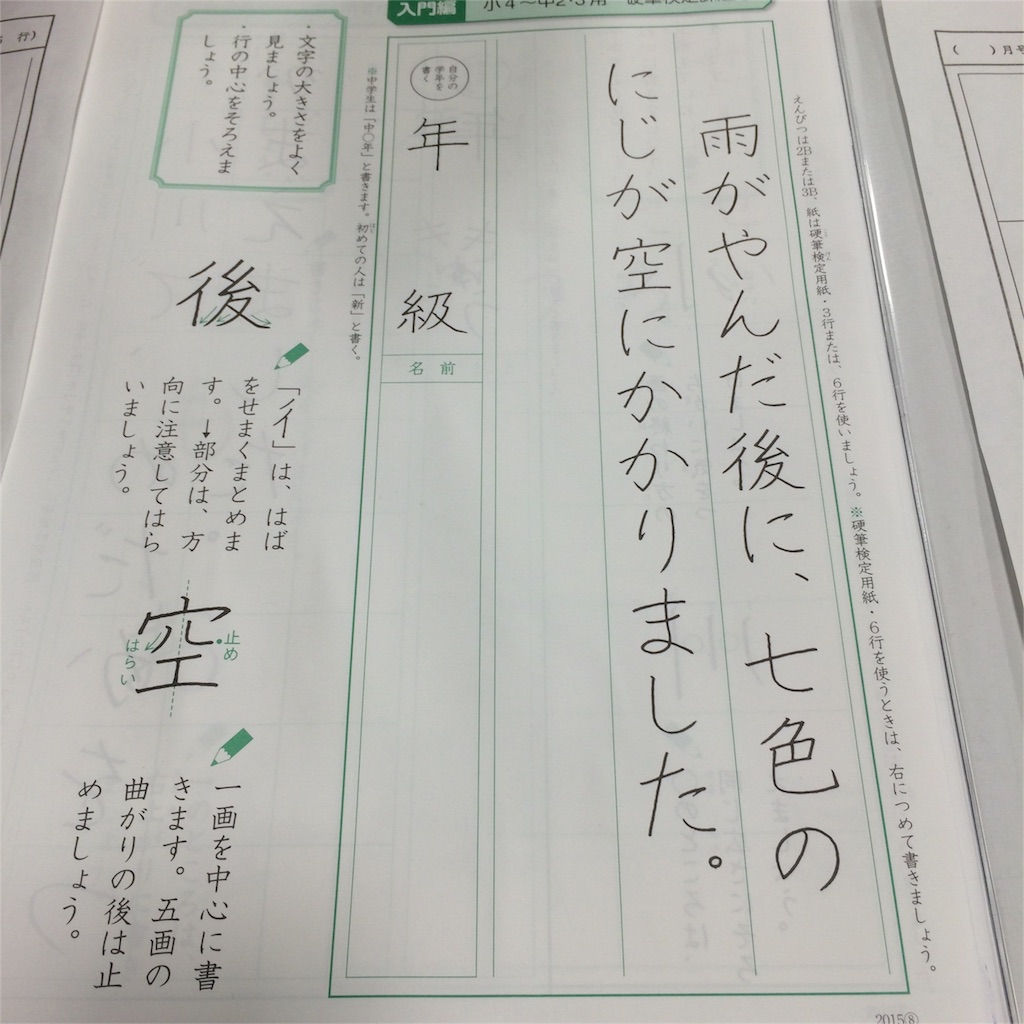 入門編
小4〜中2・3用 硬筆検定課
えんぴつは2Bまたは3B、紙は硬筆検定用紙・3行または、6行を使いましょう。※硬筆検定用紙・6行を使うときは、右につめて書きましょう。
雨がやんだ後に、七色の
にじが空にかかりました。
自分の
学年を
書く
年 級
名前
※中学生は「中〇年」と書きます。初めての人は「新」と書く。
・文字の大きさをよく
見ましょう。
・行の中心をそろえま
しょう。
後
「ノイ」は、はば
をせまくまとめま
す。↓部分は、方
向に注意してはら
いましょう。
空
止め
はらい
一画を中心に書
きます。五画の
曲がりの後は止
めましょう。
2015⑧
行)
( )月号